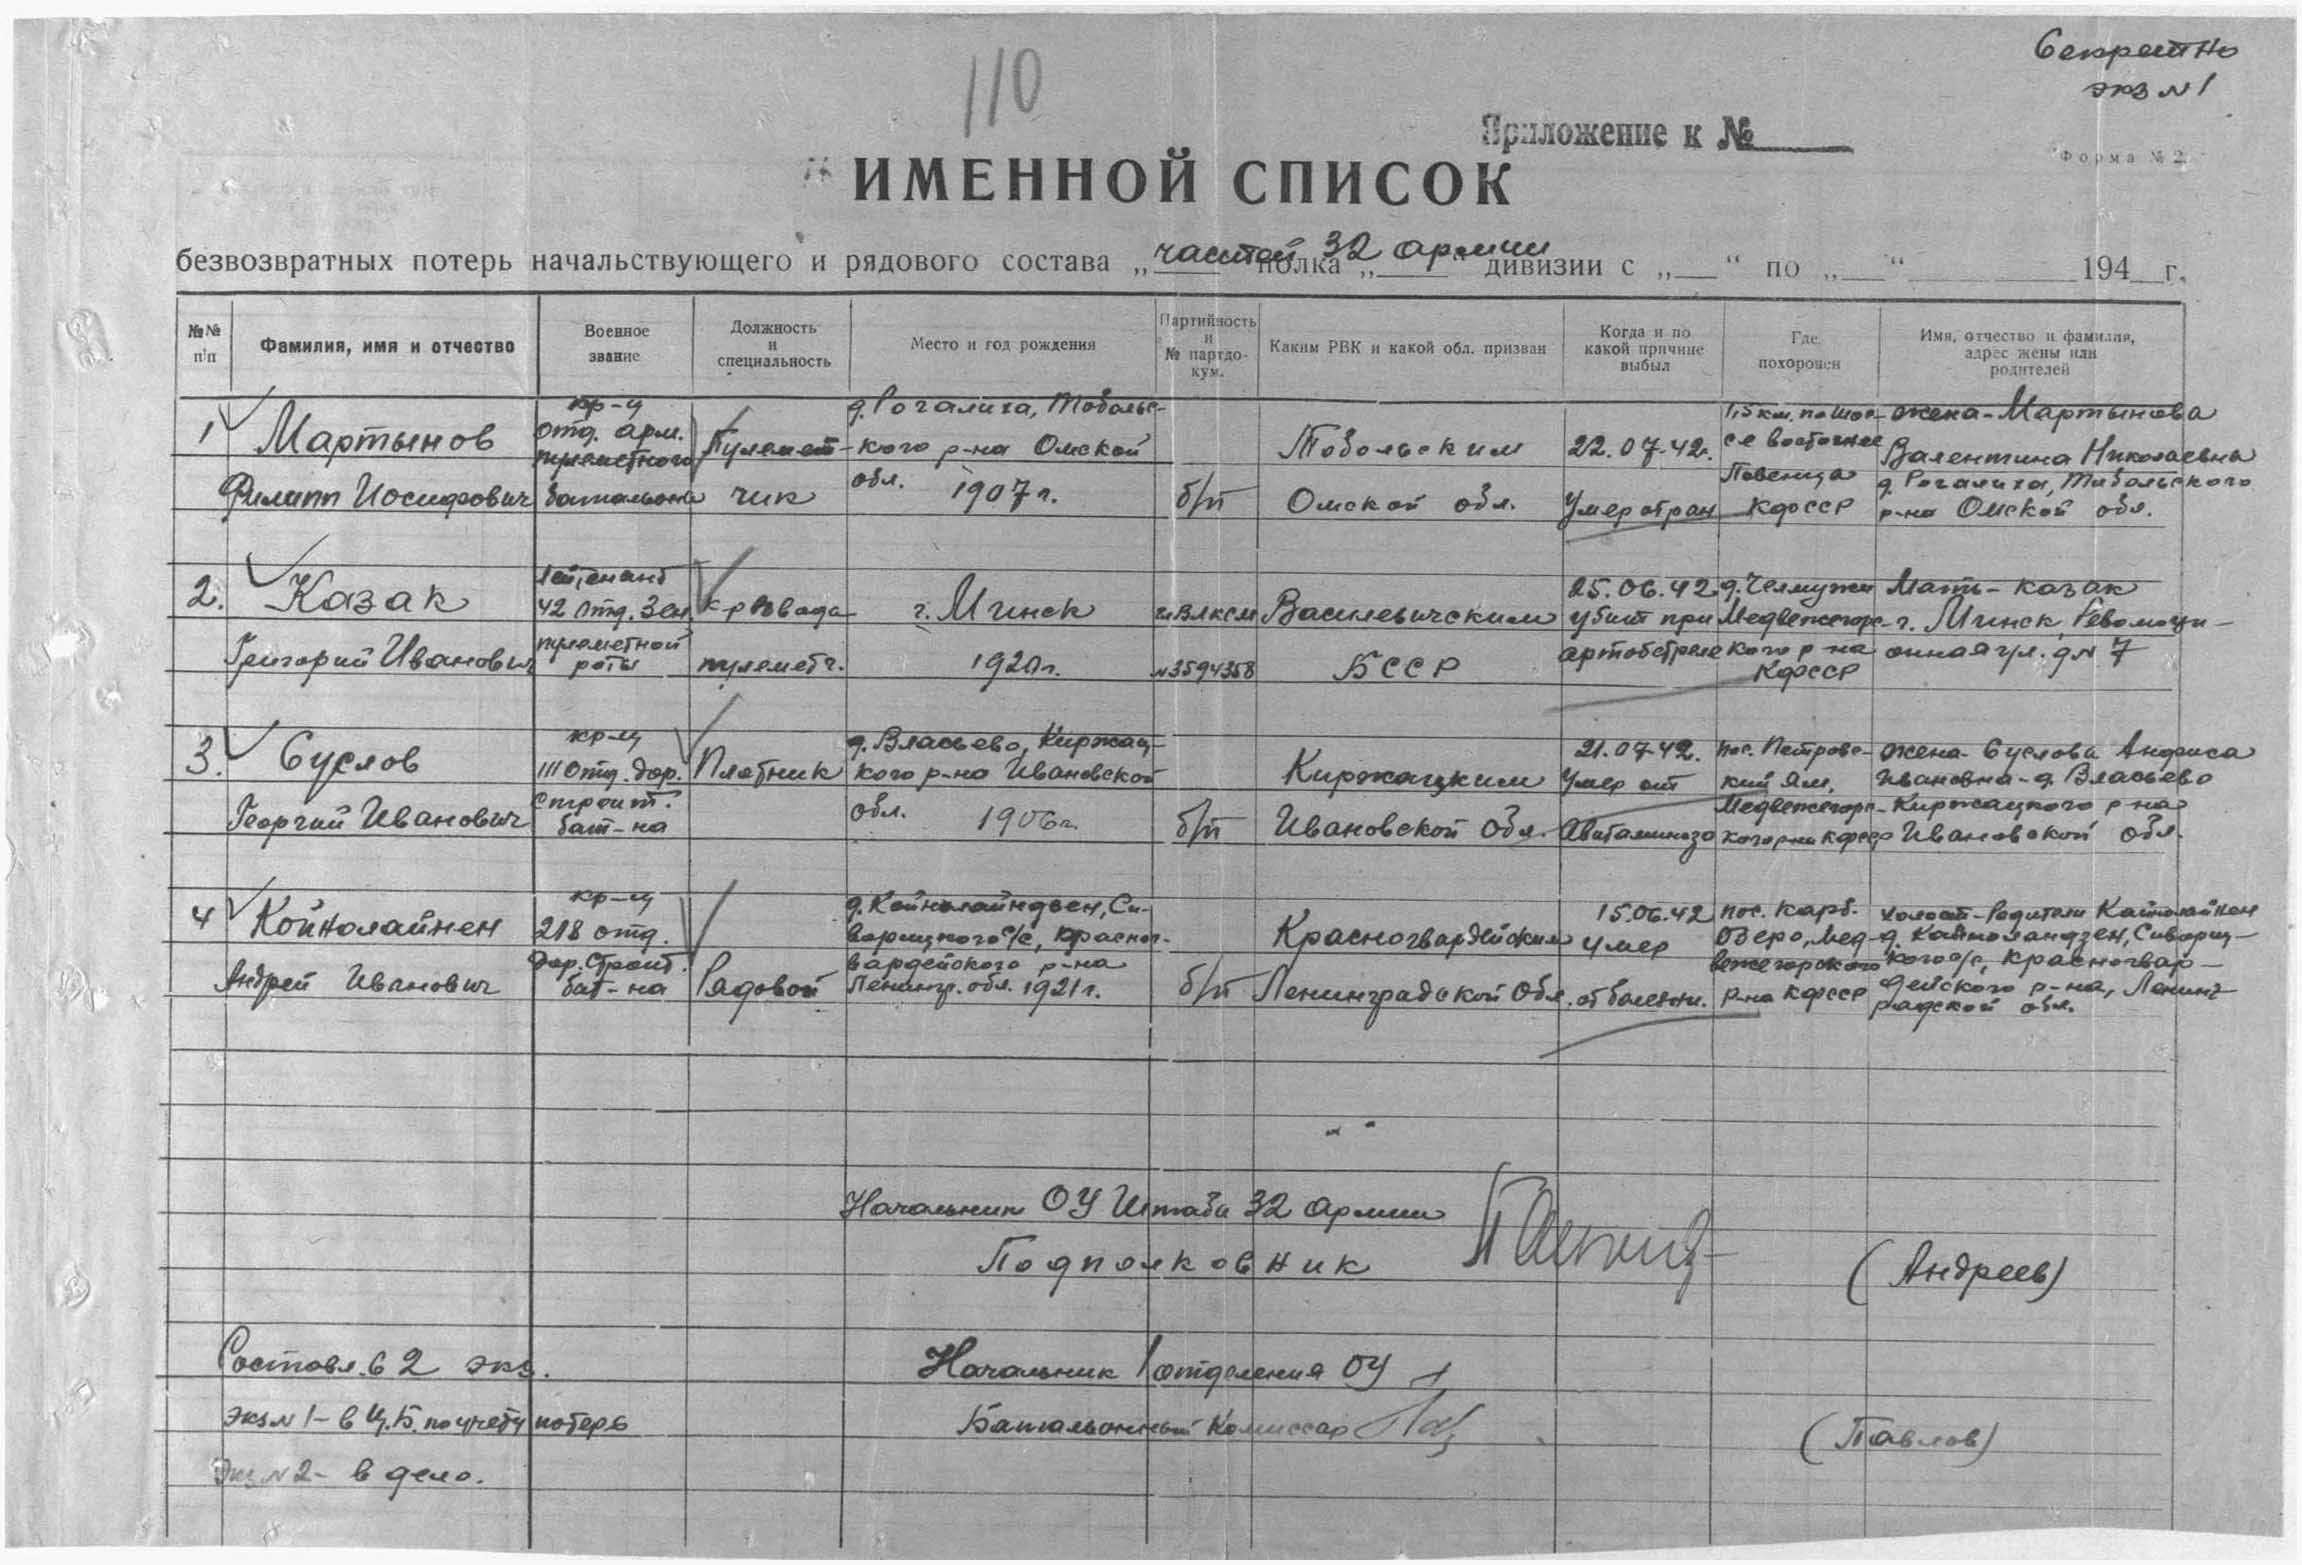 Секретно
экз №1
110
Приложение к №
Форма № 2.
ИМЕННОЙ СПИСОК
безвозвратных потерь начальствующего и рядового состава „частей 32 армии полка „ дивизии с „ “ по „ “ 194 г.
№№ п/п
Фамилия, имя и отчество
Военное звание
Должность и специальность
Место и год рождения
Партийность и № партдокум.
Каким РВК и какой обл. призван
Когда и по какой причине выбыл
Где похоронен
Имя, отчество и фамилия, адрес жены или родителей
1
Мартынов
Филипп Иосифович
кр-ц
отд. арм.
пулеметного
батальона
Пулемет-
чик
д. Рогалиха, Тобольс-
кого р-на Омской
обл. 1907 г.
б/п
Тобольским
Омской обл.
22.07.42г.
Умер от ран
1,5 км. по шос-
се восточнее
Повенца
КФССР
жена - Мартынова
Валентина Николаевна
д. Рогалиха, Тобольского
р-на Омской обл.
2.
Казак
Григорий Иванович
Лейтенант
42 отд. Зен.
пулеметной
роты
к-р взвода
пулеметч.
г. Минск
1920г.
чл ВЛКСМ
№3594358
Василевичским
БССР
25.06.42
убит при
артобстреле
д. Челмужи
Медвежегорс-
кого р-на
КФССР
Мать - Казак
г. Минск, Революци-
онная ул. д № 7
3.
Суслов
Георгий Иванович
кр-ц
111 отд. дор.
строит.
бат-на
Плотник
д. Власьево, Киржац-
кого р-на Ивановской
обл. 1906г.
б/п
Киржацким
Ивановской обл.
21.07.42.
Умер от
Авитаминоза
пос. Петровс-
кий Ям,
Медвежегорс-
кого р-на КФССР
жена - Суслова Анфиса
Ивановна - д. Власьево
Киржацкого р-на
Ивановской обл.
4
Койнолайнен
Андрей Иванович
кр-ц
218 отд.
дор. строит.
бат-на
Рядовой
д. Койнолайндзен, Си-
ворицкого с/с, Красног-
вардейского р-на
Ленингр. обл. 1921г.
б/п
Красногвардейским
Ленинградской обл.
15.06.42
умер
от болезни.
пос. Карб.
Озеро, Мед-
вежегорского
р-на КФССР
холост - Родители Койнолайнен
д. Койноландзен, Сивориц-
кого с/с, Красногвар-
дейского р-на, Ленинг-
радской обл.
Начальник ОУ Штаба 32 Армии
Подполковник
(Андреев)
Составл. в 2 экз.
Начальник 1 отделения ОУ
экз № 1 - в Ц.Б. по учету потерь
Батальонный Комиссар
(Павлов)
Экз № 2 - в дело.